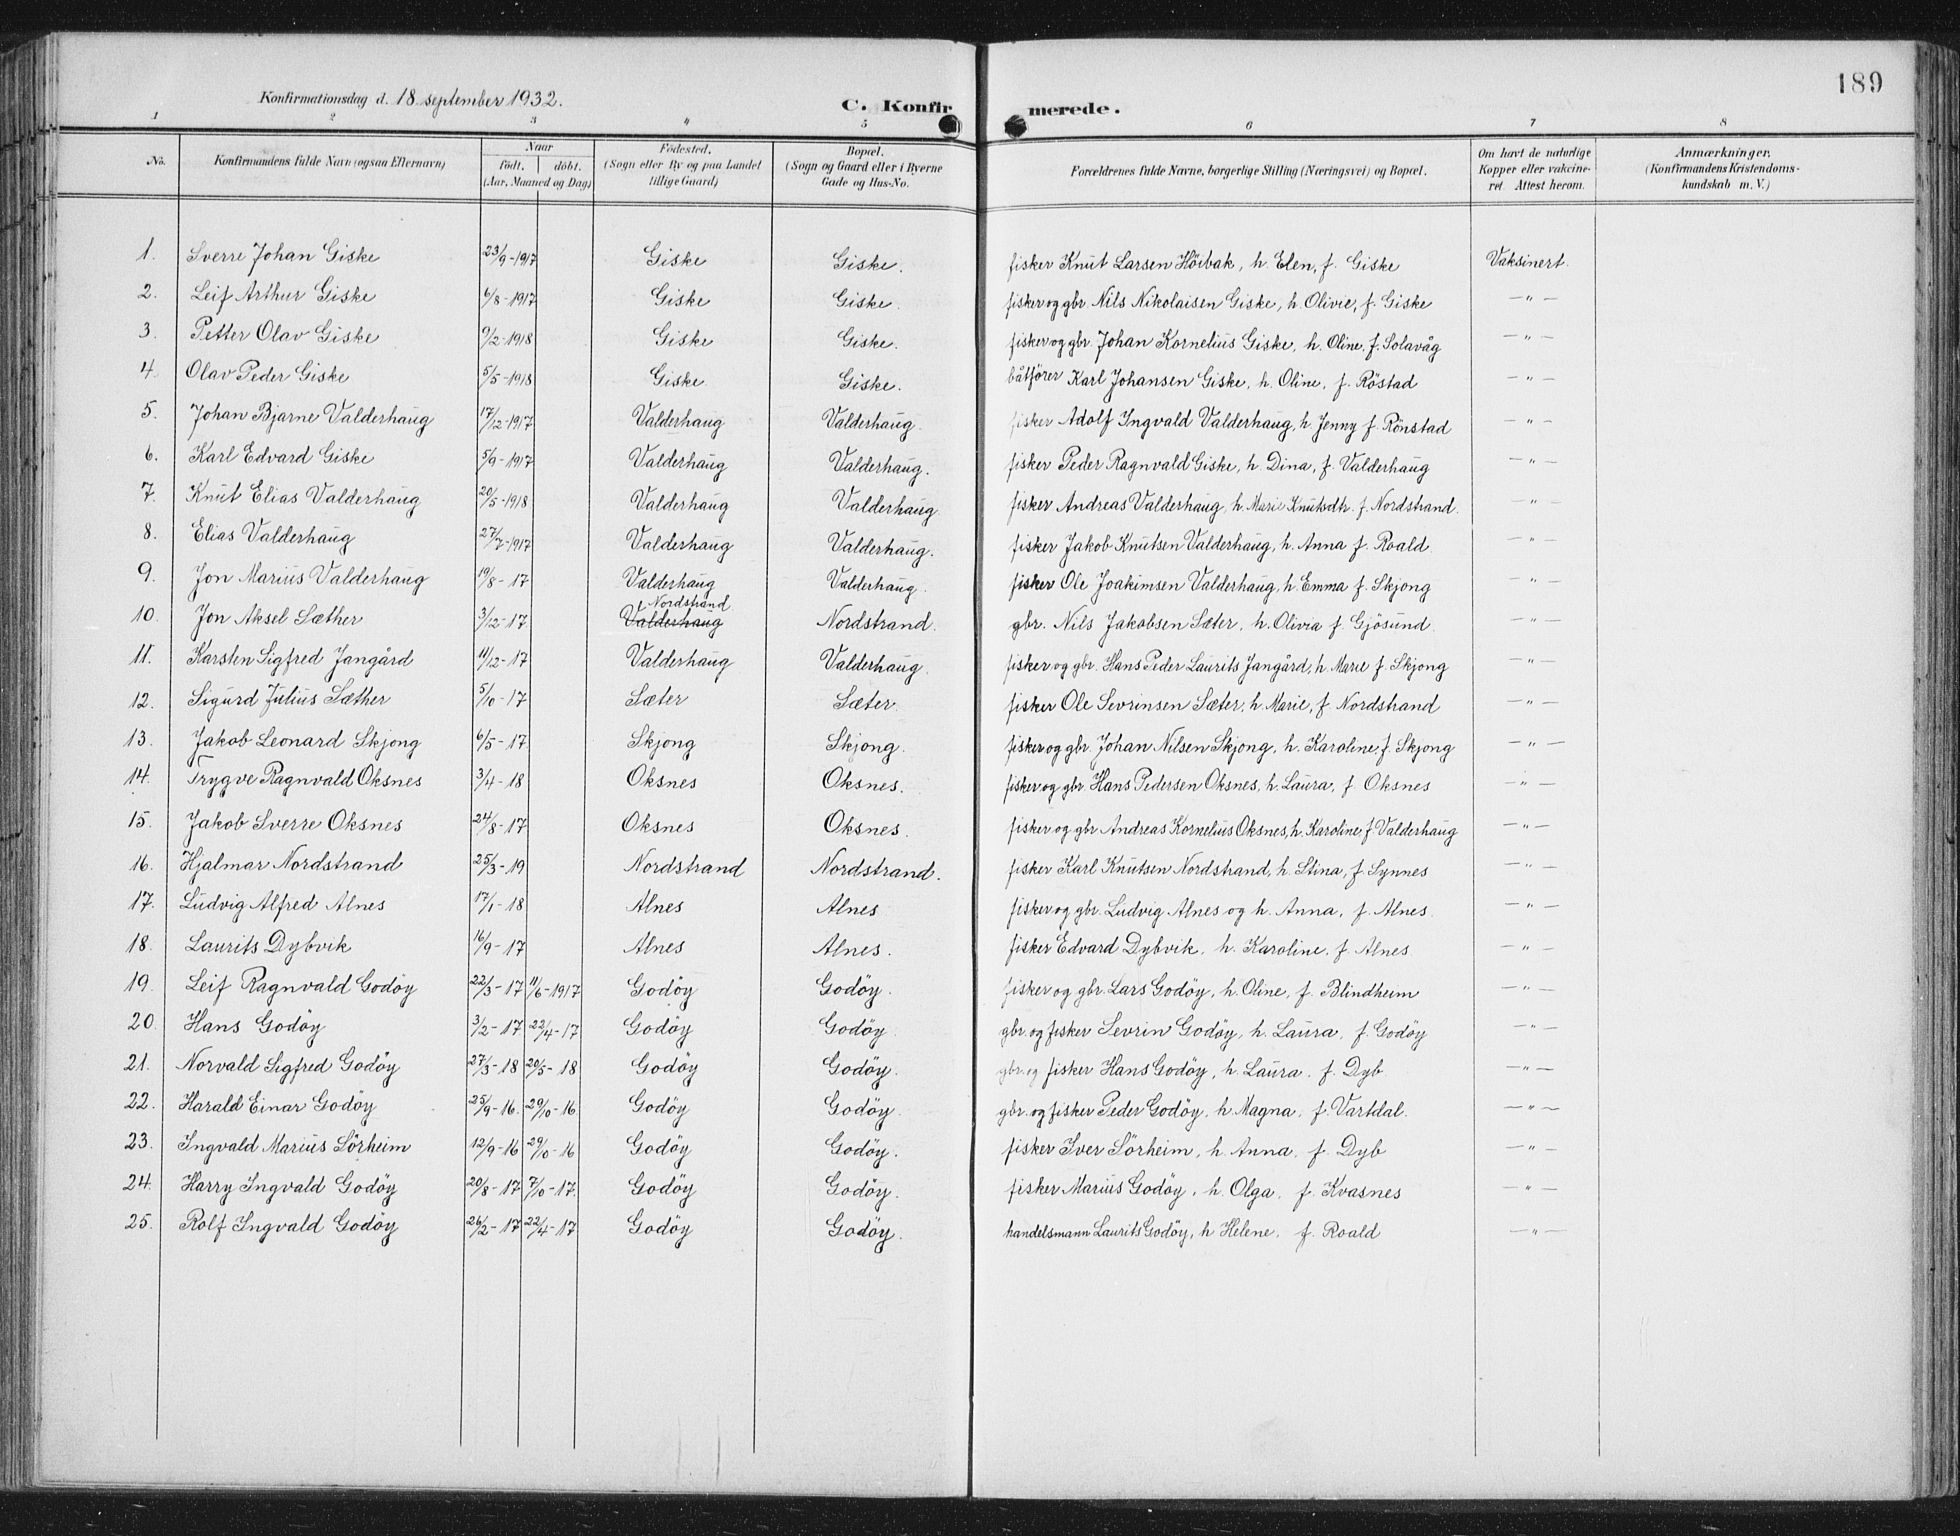 189
Konfirmationsdag d. 18 september 1932.
C. Konfir merede.
1 2 3 4 5 6 7 8
No. Konfirmandens fulde Navn (ogsaa Efternavn) Naar født. døbt. (Aar, Maaned og Dag) Fødested. (Sogn eller By og paa Landet tillige Gaard) Bopæl. (Sogn og Gaard eller i Byerne Gade og Hus-No. Forældrenes fulde Navne, borgerlige Stilling (Næringsvei) og Bopæl. Om havt de naturlige Kopper eller vakcineret. Attest herom. Anmærkninger. (Konfirmandens Kristendomskundskab m. V.)
1. Sverre Johan Giske 23/9-1917 Giske Giske. fisker Knut Larsen Höibak, h. Elen, f. Giske Vaksinert.
2. Leif Arthur Giske 6/8-1917 Giske Giske. fisker og gbr. Nils Nikolaisen Giske, h. Olivie, f. Giske — " —
3. Petter Olav Giske 9/2-1918 Giske Giske. fisker og gbr. Johan Kornelius Giske, h. Oline, f. Solavåg — " —
4. Olav Peder Giske 5/5-1918 Giske Giske. båtförer Karl Johansen Giske, h. Oline, f. Röstad — " —
5. Johan Bjarne Valderhaug 17/12-1917 Valderhaug Valderhaug. fisker Adolf Ingvald Valderhaug, h. Jenny f. Rönstad — " —
6. Karl Edvard Giske 5/9-1917 Valderhaug Valderhaug. fisker Peder Ragnvald Giske, h. Dina, f. Valderhaug — " —
7. Knut Elias Valderhaug 20/5-1918 Valderhaug Valderhaug. fisker Andreas Valderhaug, h. Marie Knutsdtr. f. Nordstrand. — " —
8. Elias Valderhaug 27/7-1917 Valderhaug Valderhaug. fisker Jakob Knutsen Valderhaug, h. Anna f. Roald. — " —
9. Jon Marius Valderhaug 19/8-17 Valderhaug Valderhaug. fisker Ole Joakimsen Valderhaug, h. Emma f. Skjong — " —
10. Jon Aksel Sæther 3/12-17 Nordstrand Valderhaug Nordstrand. gbr. Nils Jakobsen Sæter, h. Olivia f. Gjösund. — " —
11. Karsten Sigfred Jangård 11/12-17 Valderhaug Valderhaug. fisker og gbr. Hans Peder Laurits Jangård, h. Marie f. Skjong — " —
12. Sigurd Julius Sæther 5/10-17 Sæter Sæter. fisker Ole Sevrinsen Sæter, h. Marie, f. Nordstrand — " —
13. Jakob Leonard Skjong 6/5-17 Skjong Skjong. fisker og gbr. Johan Nilsen Skjong, h. Karoline, f. Skjong — " —
14. Trygve Ragnvald Oksnes 3/4-18 Oksnes Oksnes. fisker og gbr. Hans Pedersen Oksnes, h. Laura, f. Oksnes — " —
15. Jakob Sverre Oksnes 24/8-17 Oksnes Oksnes. fisker og gbr. Andreas Kornelius Oksnes, h. Karoline f. Valderhaug — " —
16. Hjalmar Nordstrand 25/3-19 Nordstrand Nordstrand. fisker Karl Knutsen Nordstrand, h. Stina, f. Synnes — " —
17. Ludvig Alfred Alnes 17/1-18 Alnes Alnes fisker og gbr. Ludvig Alnes og h. Anna, f. Alnes. — " —
18. Laurits Dybvik 16/9-17 Alnes Alnes. fisker Edvard Dybvik, h. Karoline, f. Alnes. — " —
19. Leif Ragnvald Godöy 22/3-17 11/6-1917 Godöy Godöy. fisker og gbr. Lars Godöy, h. Oline, f. Blindheim — " —
20. Hans Godöy 3/2-17 22/4-17 Godöy Godöy. gbr. og fisker Sevrin Godöy, h. Laura, f. Godöy — " —
21. Norvald Sigfred Godöy 27/3-18 20/5-18 Godöy Godöy. gbr. og fisker Hans Godöy, h. Laura. f. Dyb — " —
22. Harald Einar Godöy 25/9-16. 29/10-16 Godöy Godöy. gbr. og fisker Peder Godöy, h. Magna, f. Vartdal. — " —
23. Ingvald Marius Sörheim 12/9-16 29/10-16 Godöy Godöy. fisker Iver Sörheim, h. Anna, f. Dyb — " —
24. Harry Ingvald Godöy 20/8-17 7/10-17. Godöy Godöy. fisker Marius Godöy, h. Olga, f. Kvasnes — " —
25. Rolf Ingvald Godöy 26/2-17 22/4-17 Godöy Godöy. handelsmann Laurits Godöy, h Helene, f. Roald — " —